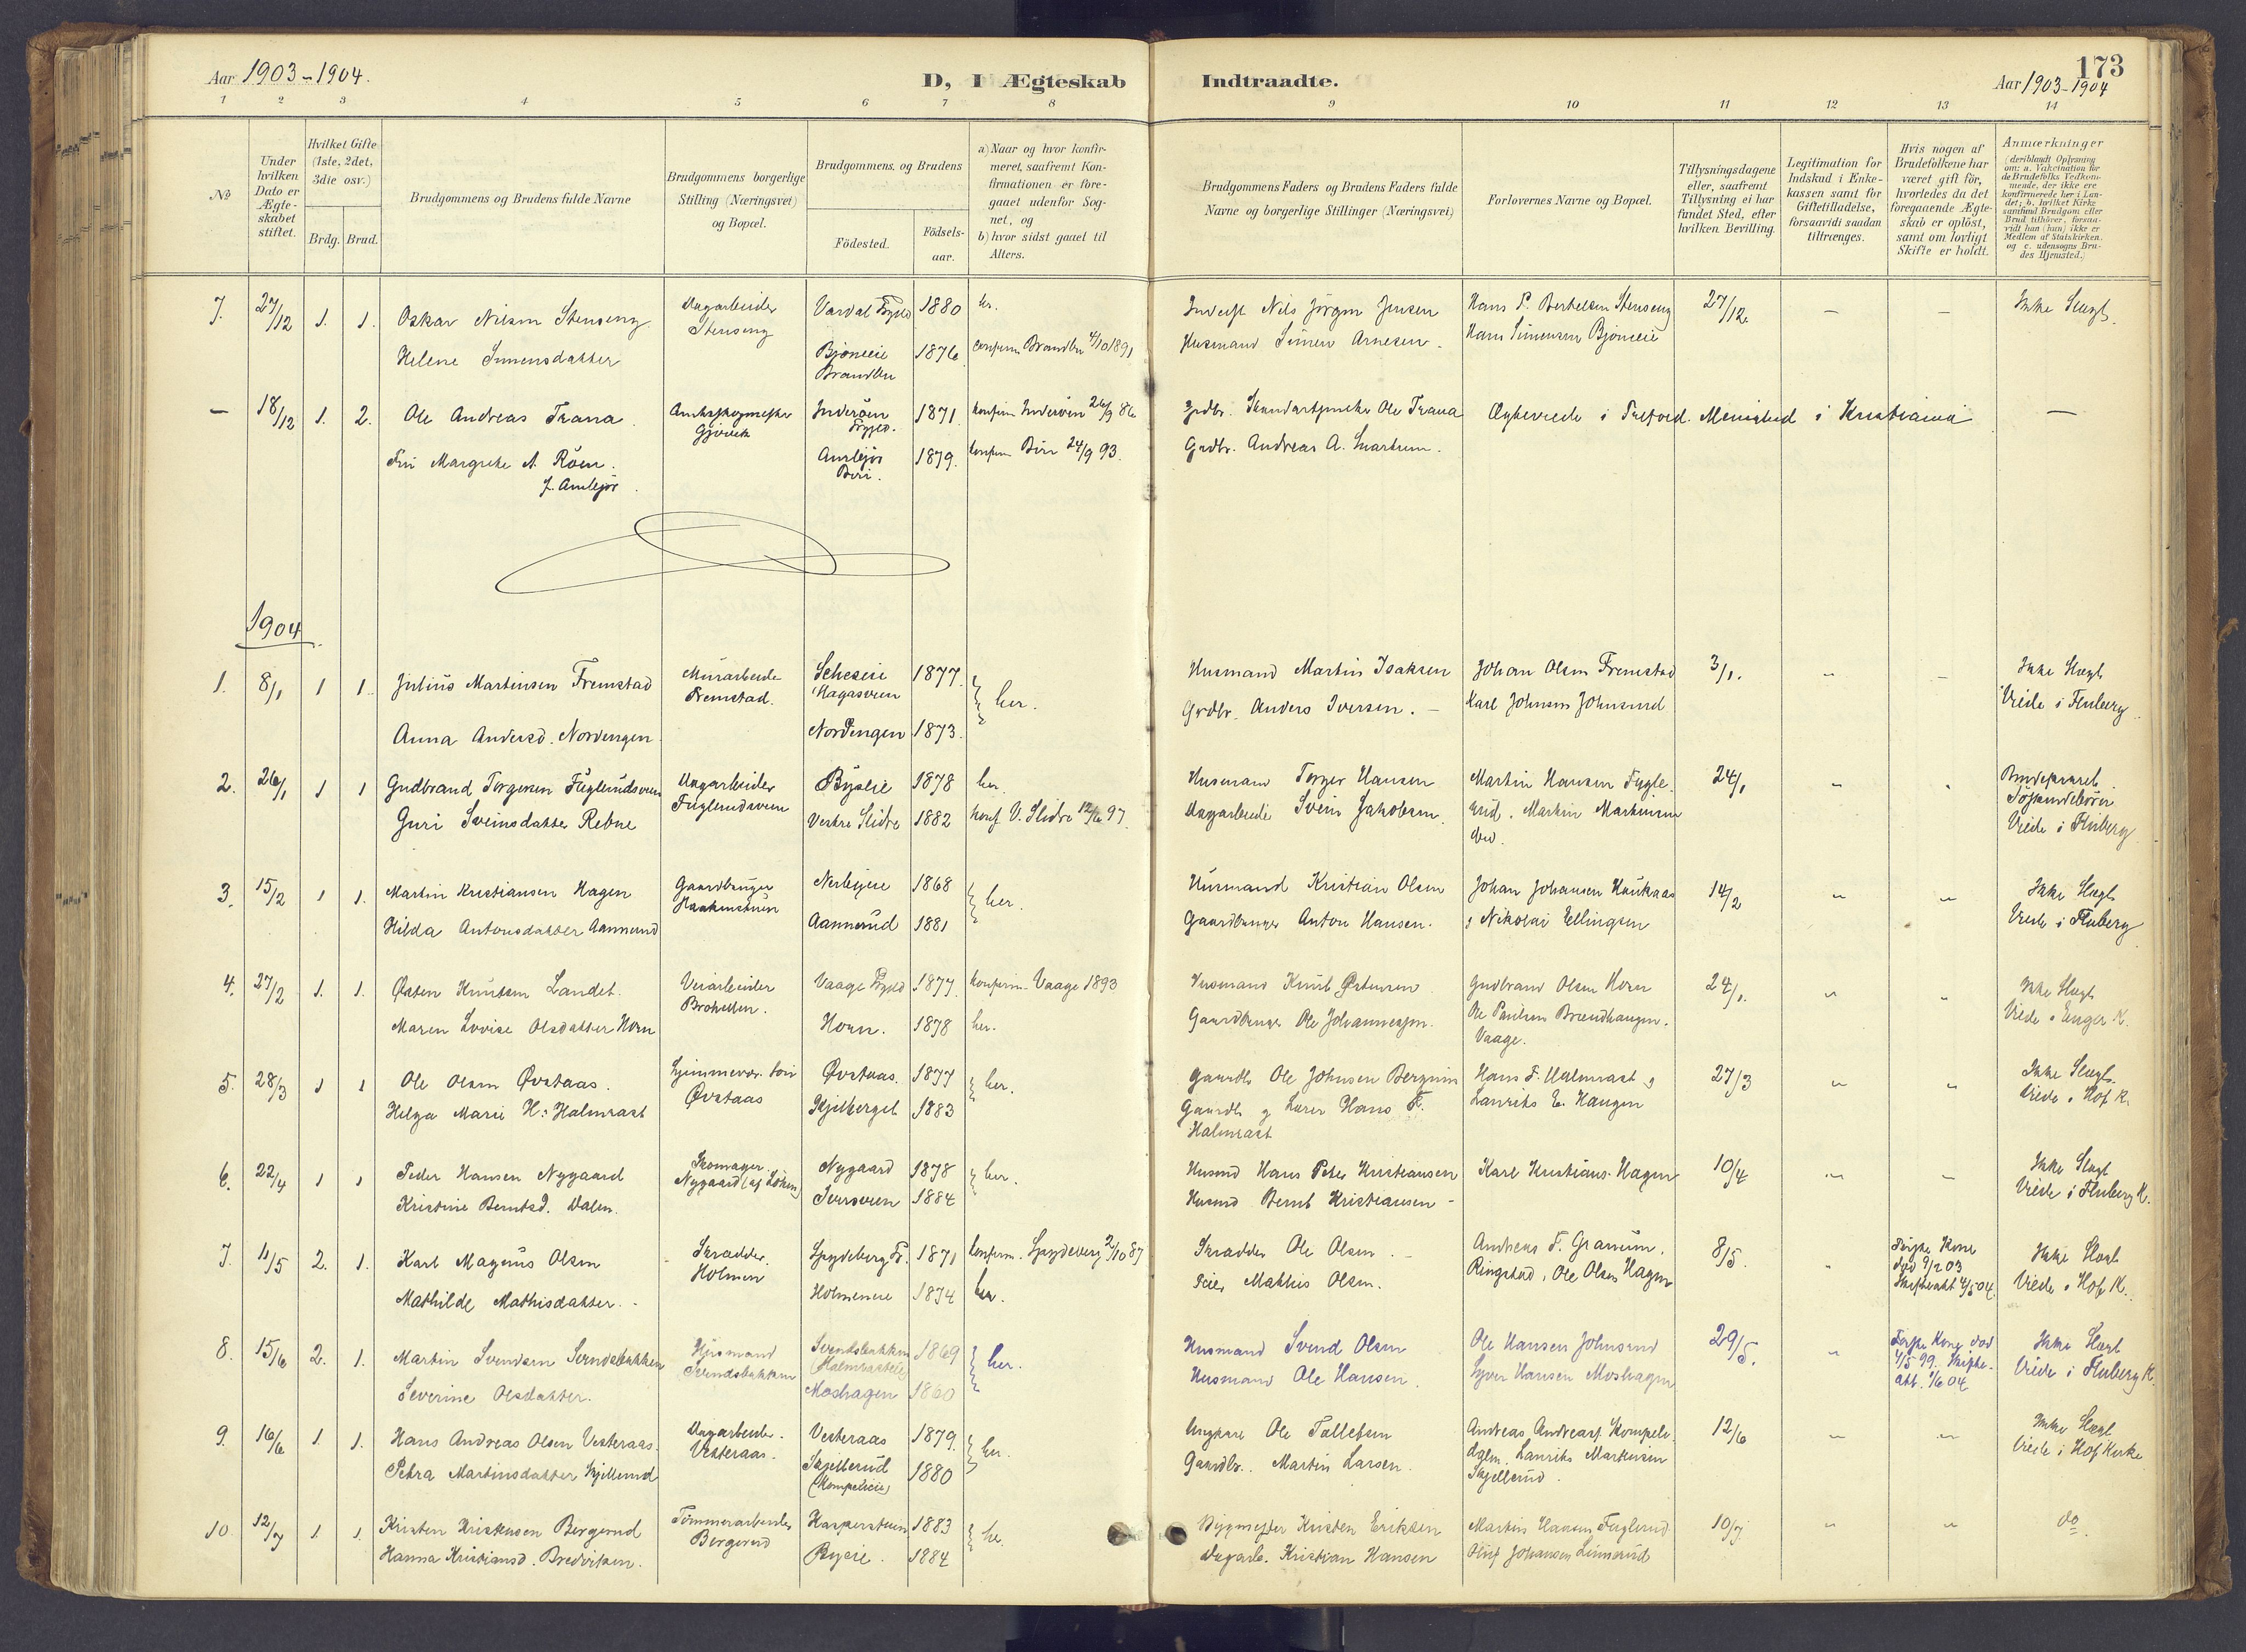 Aar 1903-1904.
D, I Ægteskab Indtraadte.
173
Aar 1903-1904
1 2 3 4 5 6 7 8 9 10 11 12 13 14
№
Under hvilken Dato er Ægteskabet stiftet.
Hvilket Gifte (1ste, 2det, 3die osv.)
Brdg. Brud.
Brudgommens og Brudens fulde Navne
Brudgommens borgerlige Stilling (Næringsvei) og Bopæl.
Brudgommens, og Brudens
Födested.
Födsels-aar.
a) Naar og hvor konfirmeret, saafremt Konfirmationen er foregaaet udenfor Sognet, og
b) hvor sidst gaaet til Alters.
Brudgommens Faders og Brudens Faders fulde Navne og borgerlige Stillinger (Næringsvei)
Forlovernes Navne og Bopæl.
Tillysningsdagene eller, saafremt Tillysning ei har fundet Sted, efter hvilken Bevilling.
Legitimation for Indskud i Enkekassen samt for Giftetilladelse, forsaavidt saadan tiltrænges.
Hvis nogen af Brudefolkene har været gift för, hvorledes da det foregaaende Ægteskab er oplöst, samt om lovligt Skifte er holdt.
Anmærkninger
(deriblandt Oplysning om: a. Vakcination for de Brudefolks Vedkommende, der ikke ere konfirmerede her i Landet; b. hvilket Kirkesamfund Brudgom eller Brud tilhörer, forsaavidt han (hun) ikke er Medlem af Statskirken, og c. udensogns Brudes Hjemsted.)
7. 27/12 1. 1. Oskar Nilsen Stenseng Dagarbeider Stenseng Vardal Prgjeld 1880 her. Nils Jörgen Jensen Hans P. Berthelsen Stenseng 27/12. – – Ikke Slægt.
Helene Simensdatter Bjöneeie Brandbu 1876 confirm. Brandbu 4/10 1891 Husmand Simen Arnesen. Hans Simensen Bjöneeie
– 18/12 1. 2. Ole Andreas Trana Gjövik Inderöen Prgjeld. 1871. konfirm Inderöen 26/9 86 Grdbr. Ole Trana Ægteviede i Trefold. Menighed i Kristiania –
Fru Margrethe A. Röen f. Amlejor. Amlejor Biri. 1879. konfirm Biri 24/9 93. Grdbr. Andreas A.
1904
1. 8/1 1 1. Julius Martinsen Fremstad Murarbeide Fremstad. 1877. her. Husmand Martin Isaksen Johan Olsen Fremstad 3/1. „ – Ikke Slægt
Anna Andersd. Nordengen Nordengen 1873. Grdbr. Anders Iversen. – Karl Johnsen Johnsrud Viede i Fluberg
2. 26/1 1 1 Gudbrand Torgersen Fuglerudsveen Dagarbeider Fuglerudsveen 1878 her. Husmand Torger Hansen Martin Hansen Fuglerud. Martin Martinsen 24/1 „ „ Brudeparret Söskendebörn
Guri Sveinsdatter Rebne Vestre Slidre 1882 konf. V. Slidre 12/6 97. Dagarbeider Svein Jakobsen. Viede i Fluberg
3. 15/2 1 1. Martin Kristiansen Hagen Gaardbruger 1868 her. Husmand Kristian Olsen Johan Johansen Haukaas 14/2 „ „ Ikke Slægt
Hilda Antonsdatter Aannerud Aannerud 1881 Gaardbruger Anton Hansen. & Nikolai Ellingsen Viede i Fluberg
4. 27/2 1. 1. Østen Knutsen Landet. Veiarbeider Vaage Prgjeld 1877. konfirm. Vaage 1893 Husmand Knut Østensen Gudbrand Olsen Horn 24/1. „ „ Ikke Slægt
Maren Lovise Olsdatter Horn Horn. 1878 her. Gaardbruger Ole Johannessen. Ole Paulsen Brændhaugen. Vaage. Viede i Enger K.
5. 28/3 1 1 Ole Olsen Øvstaas. Øvstaas Øvstaas. 1877 her. Gaardb. Ole Johnsen Hans F. Halmrast & 27/3 „ „ Ikke Slægt
Helga Marie H: Halmrast Kjelberget 1883 Gaardb. g Lærer Hans F. Halmrast Laurits E. Haugen Viede i Hof K.
6. 22/4 1 1 Peder Hansen Nygaard Skomager. Nygaard Nygaard 1878 her. Husmd Hans Peter Kristiansen Karl Kristians. Hagen 10/4 „ – Ikke Slægt
Kristine Berntsd. Dalen. Iversveen 1884 Husmd Bernt Kristiansen - Viede i Fluberg K.
7. 11/5 2. 1. Karl Magnus Olsen Skrædder. Holmen Spydeberg Pr. 1871 konfirm. Spydeberg 2/10 87 Skrædder Ole Olsen. – Andreas F. Granum, 8/5. „ Förste Kone död 9/2 03 Skifteakt 4/5 04. Ikke Slægt
Mathilde Mathisdatter. - Holmeneie 1874 her. Mathis Olsen. Ringstad, Ole Olsen Hagen Viede i Hof K.
8. 15/6 2. 1. Martin Svendsen Svendsbakken Husmand Svendsbakken Svendsbakken (Halmrasteie) 1869 her. Husmand Svend Olsen Ole Hansen Johnsrud 29/5. „ Förste Kone död 4/5 99. Skifteakt. 1/6 04 Ikke Slægt
Severine Olsdatter. Moshagen 1860 Husmand Ole Hansen. Syver Hansen Moshagen Viede i Fluberg K.
9. 16/6 1. 1. Hans Andreas Olsen Vesteraas. Dagarbeider. Vesteraas. Vesteraas 1879. her. Ole Tollefsen Andreas Andreass. 12/6 „ „ Ikke Slægt
Petra Martinsdatter Skjellerud Skjellerud 1880 Gaardbr. Martin Larsen. Laurits Martinsen Skjellerud. Viede i Hof Kirke
10. 12/7 1. 1. Kristen Kristensen Bergerud Tömmerarbeider Bergerud 1883 her. Bygmester Kristen Eriksen Martin Hansen Fuglerud 10/7. „ „ do.
Hanna Kristiansd. Bredviken. Byeie. 1884 Dagarb. Kristian Hansen Oluf Johansen Linnerud